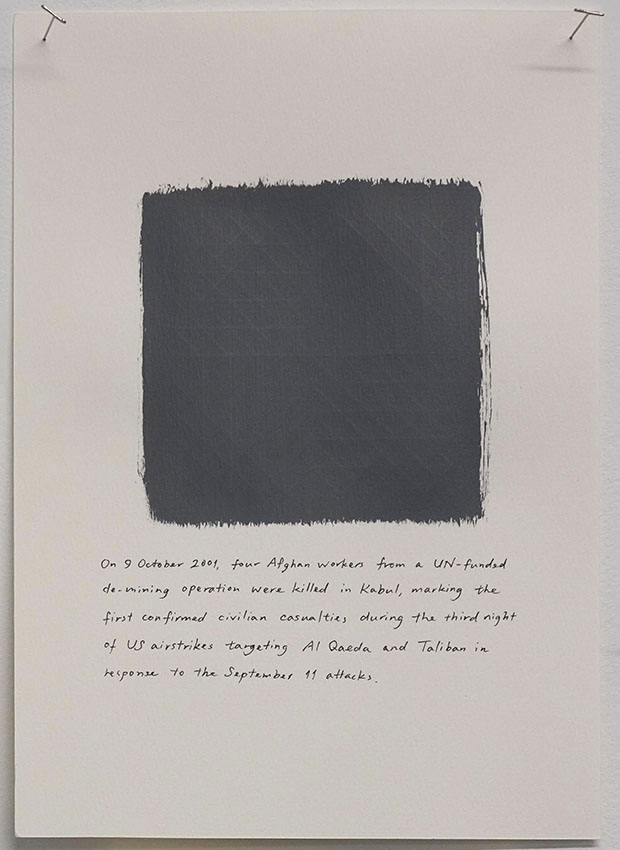 On 9 October 2001, four Afghan workers from a UN-funded
de-mining operation were killed in Kabul, marking the
first confirmed civilian casualties during the third night
of US airstrikes targeting Al Qaeda and Taliban in
response to the September 11 attacks.